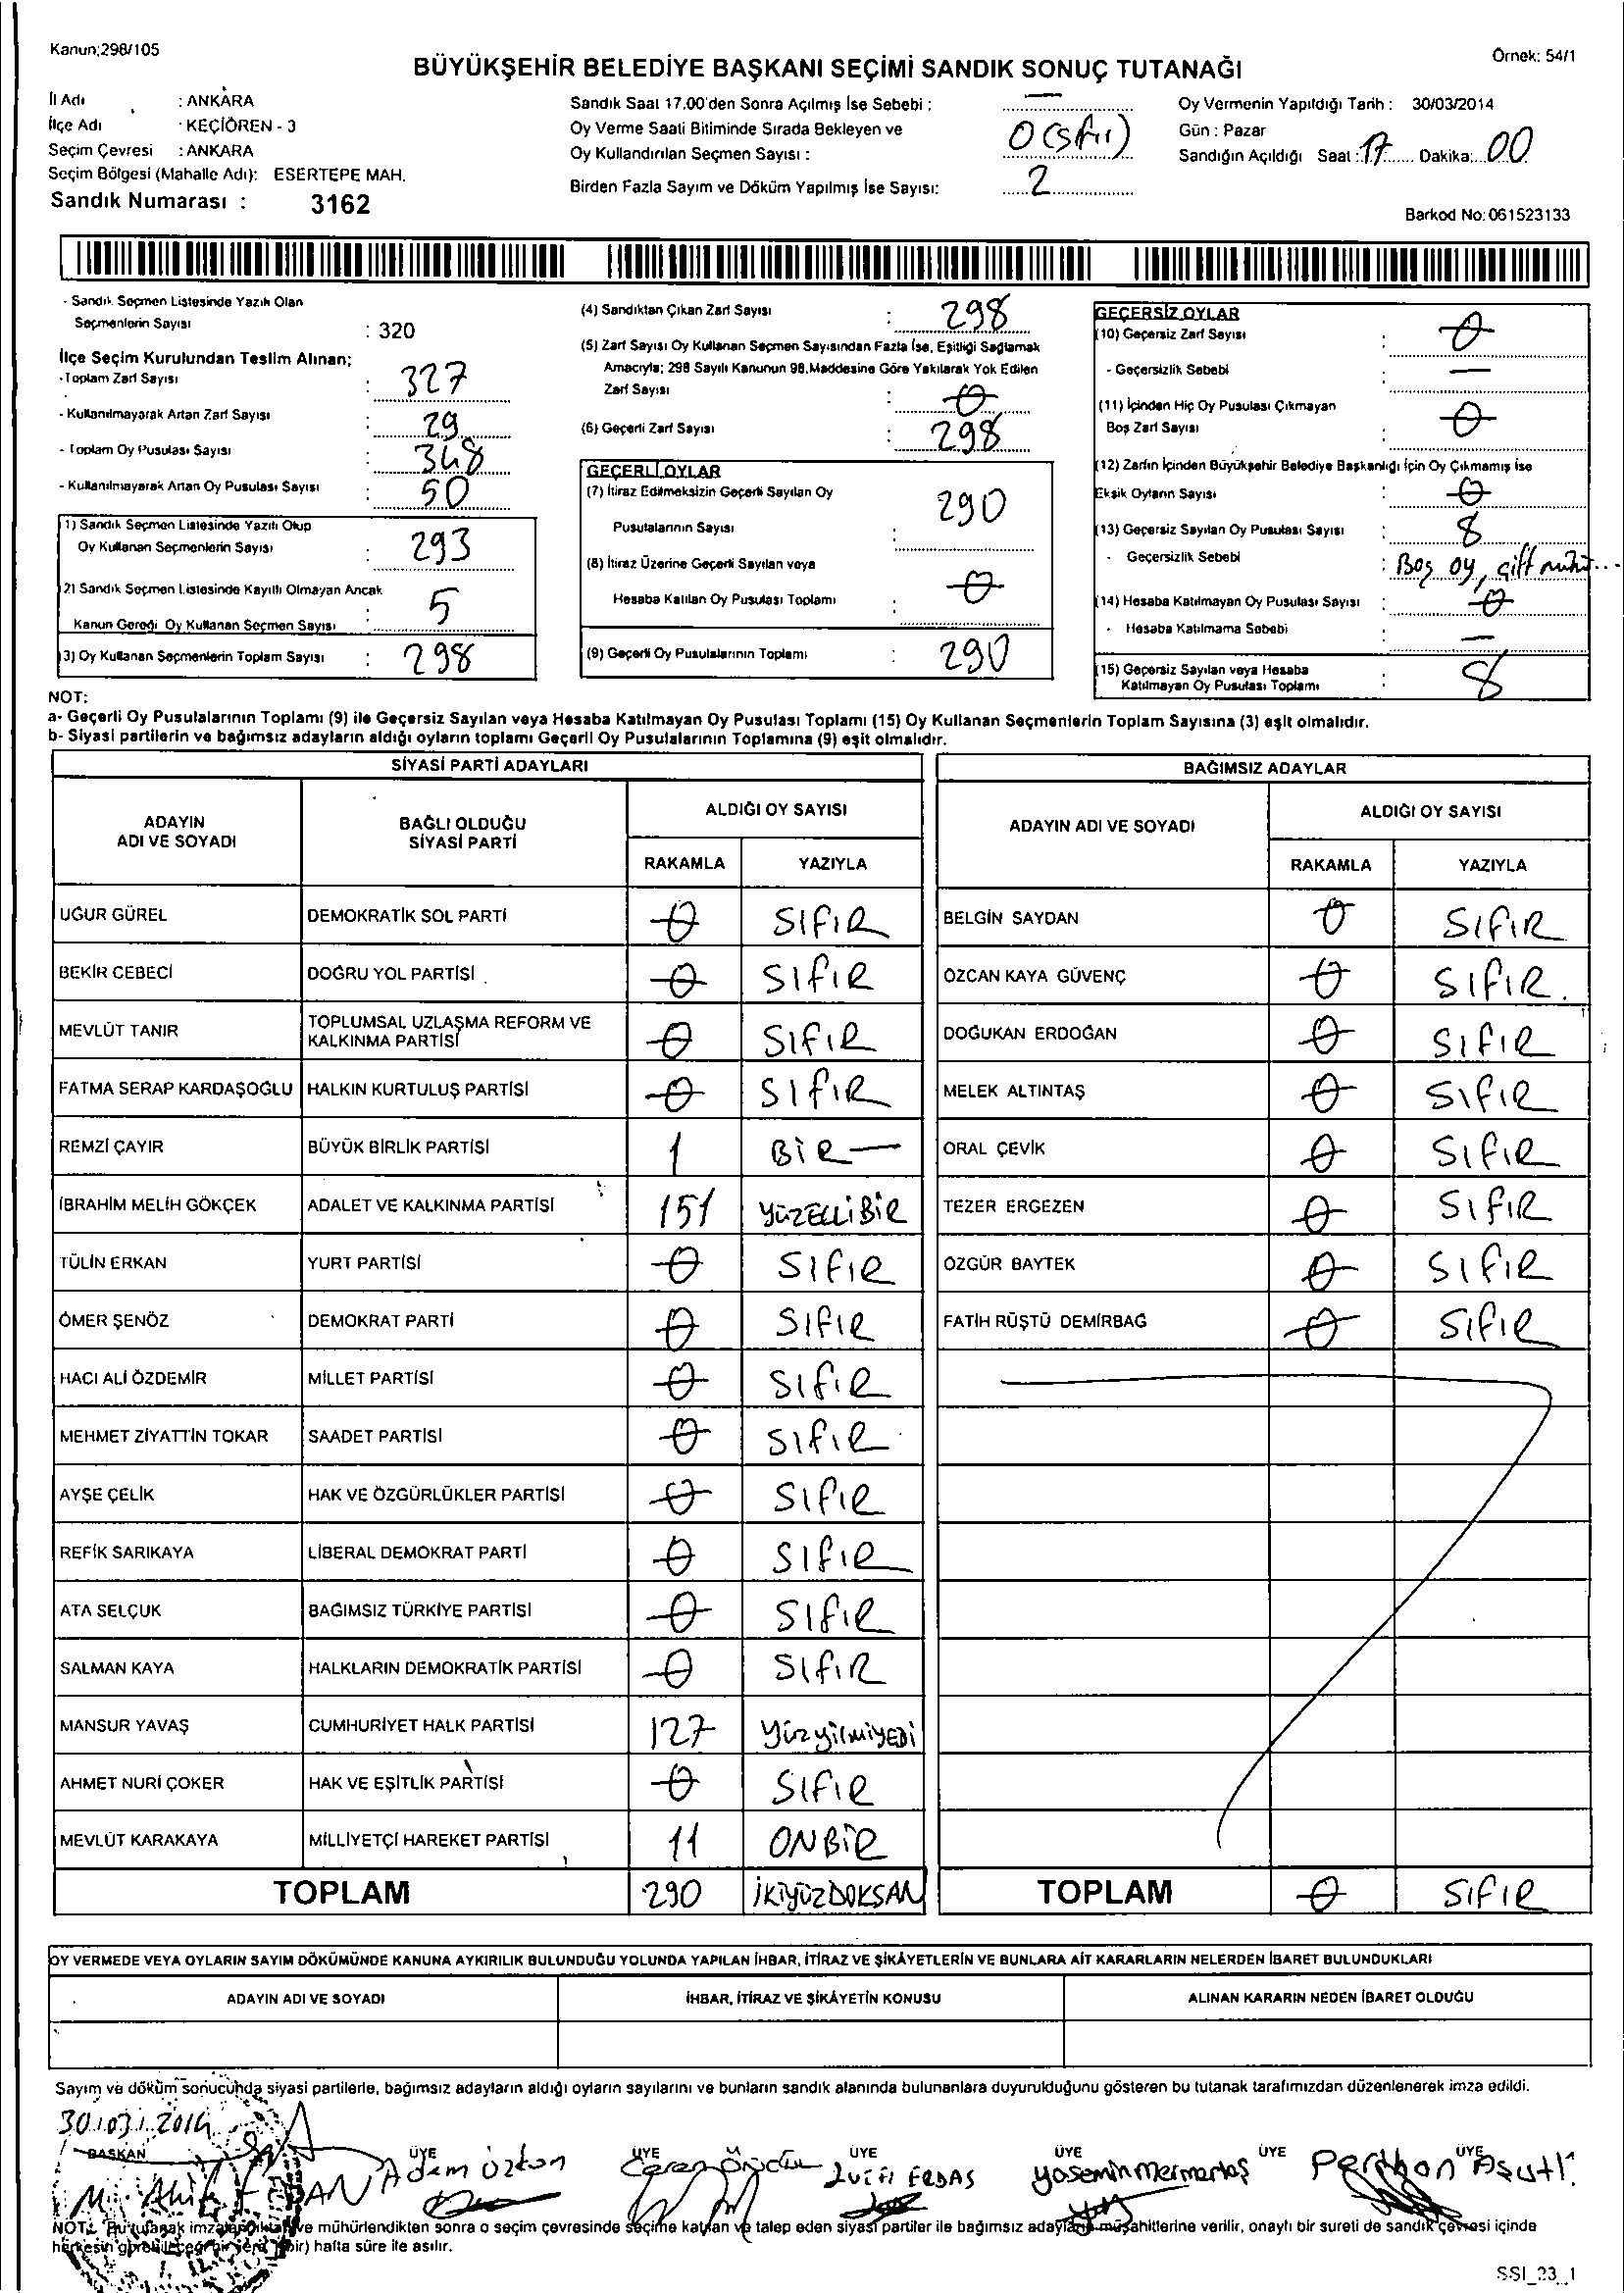 Kanun;298/105
Örnek: 54/1
BÜYÜKŞEHİR BELEDİYE BAŞKANI SEÇİMİ SANDIK SONUÇ TUTANAĞI
İl Adı : ANKARA
İlçe Adı : KEÇİÖREN - 3
Seçim Çevresi : ANKARA
Seçim Bölgesi (Mahalle Adı): ESERTEPE MAH.
Sandık Numarası : 3162
Sandık Saat 17.00'den Sonra Açılmış İse Sebebi : —
Oy Verme Saati Bitiminde Sırada Bekleyen ve
Oy Kullandırılan Seçmen Sayısı : 0 (sıfır)
Birden Fazla Sayım ve Döküm Yapılmış İse Sayısı: 2
Oy Vermenin Yapıldığı Tarih : 30/03/2014
Gün : Pazar
Sandığın Açıldığı Saat : 17 Dakika: 00
Barkod No: 061523133
- Sandık Seçmen Listesinde Yazılı Olan
Seçmenlerin Sayısı : 320
İlçe Seçim Kurulundan Teslim Alınan;
- Toplam Zarf Sayısı : 327
- Kullanılmayarak Artan Zarf Sayısı : 29
- Toplam Oy Pusulası Sayısı : 348
- Kullanılmayarak Artan Oy Pusulası Sayısı : 50
1) Sandık Seçmen Listesinde Yazılı Olup
Oy Kullanan Seçmenlerin Sayısı : 293
2) Sandık Seçmen Listesinde Kayıtlı Olmayan Ancak
Kanun Gereği Oy Kullanan Seçmen Sayısı : 5
3) Oy Kullanan Seçmenlerin Toplam Sayısı : 298
(4) Sandıktan Çıkan Zarf Sayısı : 298
(5) Zarf Sayısı Oy Kullanan Seçmen Sayısından Fazla İse, Eşitliği Sağlamak
Amacıyla; 298 Sayılı Kanunun 98.Maddesine Göre Yakılarak Yok Edilen
Zarf Sayısı : 0
(6) Geçerli Zarf Sayısı : 298
GEÇERLİ OYLAR
(7) İtiraz Edilmeksizin Geçerli Sayılan Oy
Pusulalarının Sayısı : 290
(8) İtiraz Üzerine Geçerli Sayılan veya
Hesaba Katılan Oy Pusulası Toplamı : 0
(9) Geçerli Oy Pusulalarının Toplamı : 290
GEÇERSİZ OYLAR
(10) Geçersiz Zarf Sayısı : 0
- Geçersizlik Sebebi : —
(11) İçinden Hiç Oy Pusulası Çıkmayan
Boş Zarf Sayısı : 0
(12) Zarfın İçinden Büyükşehir Belediye Başkanlığı İçin Oy Çıkmamış ise
Eksik Oyların Sayısı : 0
(13) Geçersiz Sayılan Oy Pusulası Sayısı : 8
- Geçersizlik Sebebi : Boş oy, çift
(14) Hesaba Katılmayan Oy Pusulası Sayısı : 0
- Hesaba Katılmama Sebebi : —
(15) Geçersiz Sayılan veya Hesaba
Katılmayan Oy Pusulası Toplamı : 8
NOT:
a- Geçerli Oy Pusulalarının Toplamı (9) ile Geçersiz Sayılan veya Hesaba Katılmayan Oy Pusulası Toplamı (15) Oy Kullanan Seçmenlerin Toplam Sayısına (3) eşit olmalıdır.
b- Siyasi partilerin ve bağımsız adayların aldığı oyların toplamı Geçerli Oy Pusulalarının Toplamına (9) eşit olmalıdır.
SİYASİ PARTİ ADAYLARI
ADAYIN ADI VE SOYADI BAĞLI OLDUĞU SİYASİ PARTİ ALDIĞI OY SAYISI
RAKAMLA YAZIYLA
UĞUR GÜREL DEMOKRATİK SOL PARTİ 0 SIFIR
BEKİR CEBECİ DOĞRU YOL PARTİSİ 0 SIFIR
MEVLÜT TANIR TOPLUMSAL UZLAŞMA REFORM VE KALKINMA PARTİSİ 0 SIFIR
FATMA SERAP KARDAŞOĞLU HALKIN KURTULUŞ PARTİSİ 0 SIFIR
REMZİ ÇAYIR BÜYÜK BİRLİK PARTİSİ 1 BİR —
İBRAHİM MELİH GÖKÇEK ADALET VE KALKINMA PARTİSİ 151 YÜZELLİBİR
TÜLİN ERKAN YURT PARTİSİ 0 SIFIR
ÖMER ŞENÖZ DEMOKRAT PARTİ 0 SIFIR
HACI ALİ ÖZDEMİR MİLLET PARTİSİ 0 SIFIR
MEHMET ZİYATTİN TOKAR SAADET PARTİSİ 0 SIFIR
AYŞE ÇELİK HAK VE ÖZGÜRLÜKLER PARTİSİ 0 SIFIR
REFİK SARIKAYA LİBERAL DEMOKRAT PARTİ 0 SIFIR
ATA SELÇUK BAĞIMSIZ TÜRKİYE PARTİSİ 0 SIFIR
SALMAN KAYA HALKLARIN DEMOKRATİK PARTİSİ 0 SIFIR
MANSUR YAVAŞ CUMHURİYET HALK PARTİSİ 127 Yüzyilmiyedi
AHMET NURİ ÇOKER HAK VE EŞİTLİK PARTİSİ 0 SIFIR
MEVLÜT KARAKAYA MİLLİYETÇİ HAREKET PARTİSİ 11 ONBİR
TOPLAM 290 İKİYÜZDOKSAN
BAĞIMSIZ ADAYLAR
ADAYIN ADI VE SOYADI ALDIĞI OY SAYISI
RAKAMLA YAZIYLA
BELGİN SAYDAN 0 SIFIR
ÖZCAN KAYA GÜVENÇ 0 SIFIR
DOĞUKAN ERDOĞAN 0 SIFIR
MELEK ALTINTAŞ 0 SIFIR
ORAL ÇEVİK 0 SIFIR
TEZER ERGEZEN 0 SIFIR
ÖZGÜR BAYTEK 0 SIFIR
FATİH RÜŞTÜ DEMİRBAĞ 0 SIFIR
TOPLAM 0 SIFIR
OY VERMEDE VEYA OYLARIN SAYIM DÖKÜMÜNDE KANUNA AYKIRILIK BULUNDUĞU YOLUNDA YAPILAN İHBAR, İTİRAZ VE ŞİKÂYETLERİN VE BUNLARA AİT KARARLARIN NELERDEN İBARET BULUNDUKLARI
ADAYIN ADI VE SOYADI İHBAR, İTİRAZ VE ŞİKÂYETİN KONUSU ALINAN KARARIN NEDEN İBARET OLDUĞU
Sayım ve döküm sonucunda siyasi partilerle, bağımsız adayların aldığı oyların sayılarını ve bunların sandık alanında bulunanlara duyurulduğunu gösteren bu tutanak tarafımızdan düzenlenerek imza edildi.
30/03/2014
BAŞKAN ÜYE ÜYE ÜYE ÜYE ÜYE ÜYE
Adem özkan Ceren LÜTFİ ERDAŞ yasemin mermertaş Perihan
NOT: Bu tutanak imzalandıktan ve mühürlendikten sonra o seçim çevresinde seçime katılan ve talep eden siyasi partiler ile bağımsız adayların müşahitlerine verilir, onaylı bir sureti de sandık çevresi içinde
herkesin görebileceği bir yere (bir) hafta süre ile asılır.
SSI_23_1